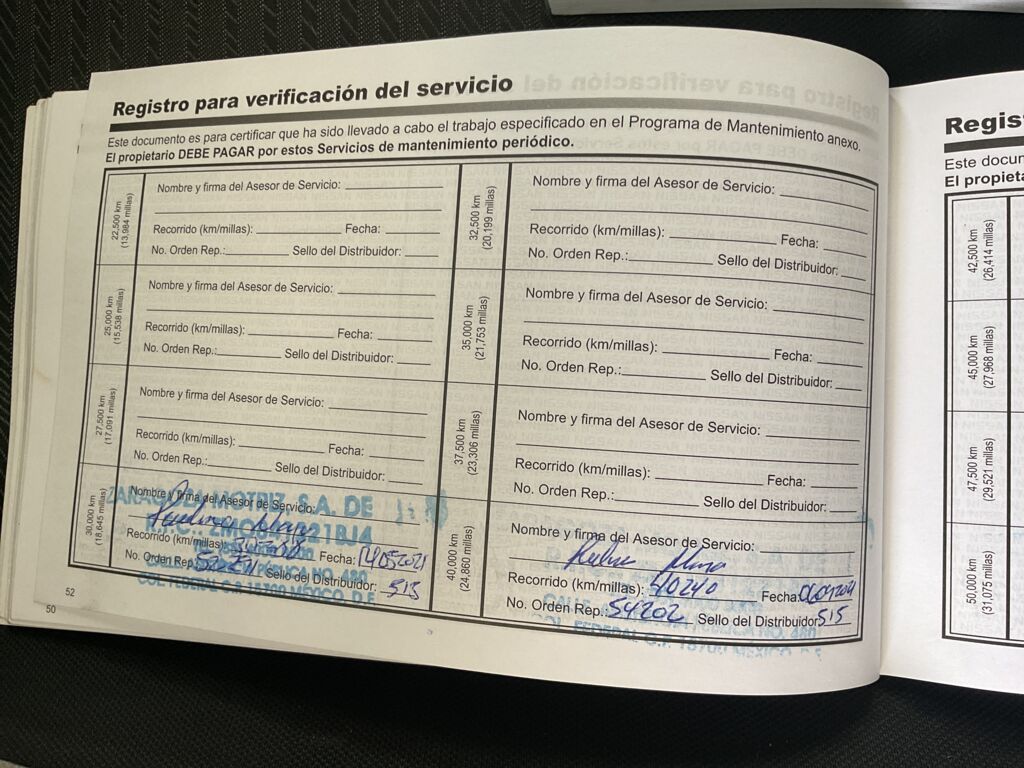 Registro para verificación del servicio
Este documento es para certificar que ha sido llevado a cabo el trabajo especificado en el Programa de Mantenimiento anexo.
El propietario DEBE PAGAR por estos Servicios de mantenimiento periódico.
22,500 km
(13,984 millas)
Nombre y firma del Asesor de Servicio:
Recorrido (km/millas): Fecha:
No. Orden Rep.: Sello del Distribuidor:
25,000 km
(15,538 millas)
Nombre y firma del Asesor de Servicio:
Recorrido (km/millas): Fecha:
No. Orden Rep.: Sello del Distribuidor:
27,500 km
(17,091 millas)
Nombre y firma del Asesor de Servicio:
Recorrido (km/millas): Fecha:
No. Orden Rep.: Sello del Distribuidor:
30,000 km
(18,645 millas)
Nombre y firma del Asesor de Servicio:
ZARAGOZA MOTRIZ, S.A. DE
Recorrido (km/millas): Fecha: 14052021
No. Orden Rep.: Sello del Distribuidor: 515
COL. FEDERAL C.P. 15700 MÉXICO, D.F.
32,500 km
(20,199 millas)
Nombre y firma del Asesor de Servicio:
Recorrido (km/millas): Fecha:
No. Orden Rep.: Sello del Distribuidor:
35,000 km
(21,753 millas)
Nombre y firma del Asesor de Servicio:
Recorrido (km/millas): Fecha:
No. Orden Rep.: Sello del Distribuidor:
37,500 km
(23,306 millas)
Nombre y firma del Asesor de Servicio:
Recorrido (km/millas): Fecha:
No. Orden Rep.: Sello del Distribuidor:
40,000 km
(24,860 millas)
Nombre y firma del Asesor de Servicio:
Recorrido (km/millas): 40240 Fecha:
No. Orden Rep.: 54202 Sello del Distribuidor: 515
COL. FEDERAL C.P. 15700 MEXICO
52
50
Regis
Este docum
El propieta
42,500 km
(26,414 millas)
45,000 km
(27,968 millas)
47,500 km
(29,521 millas)
50,000 km
(31,075 millas)